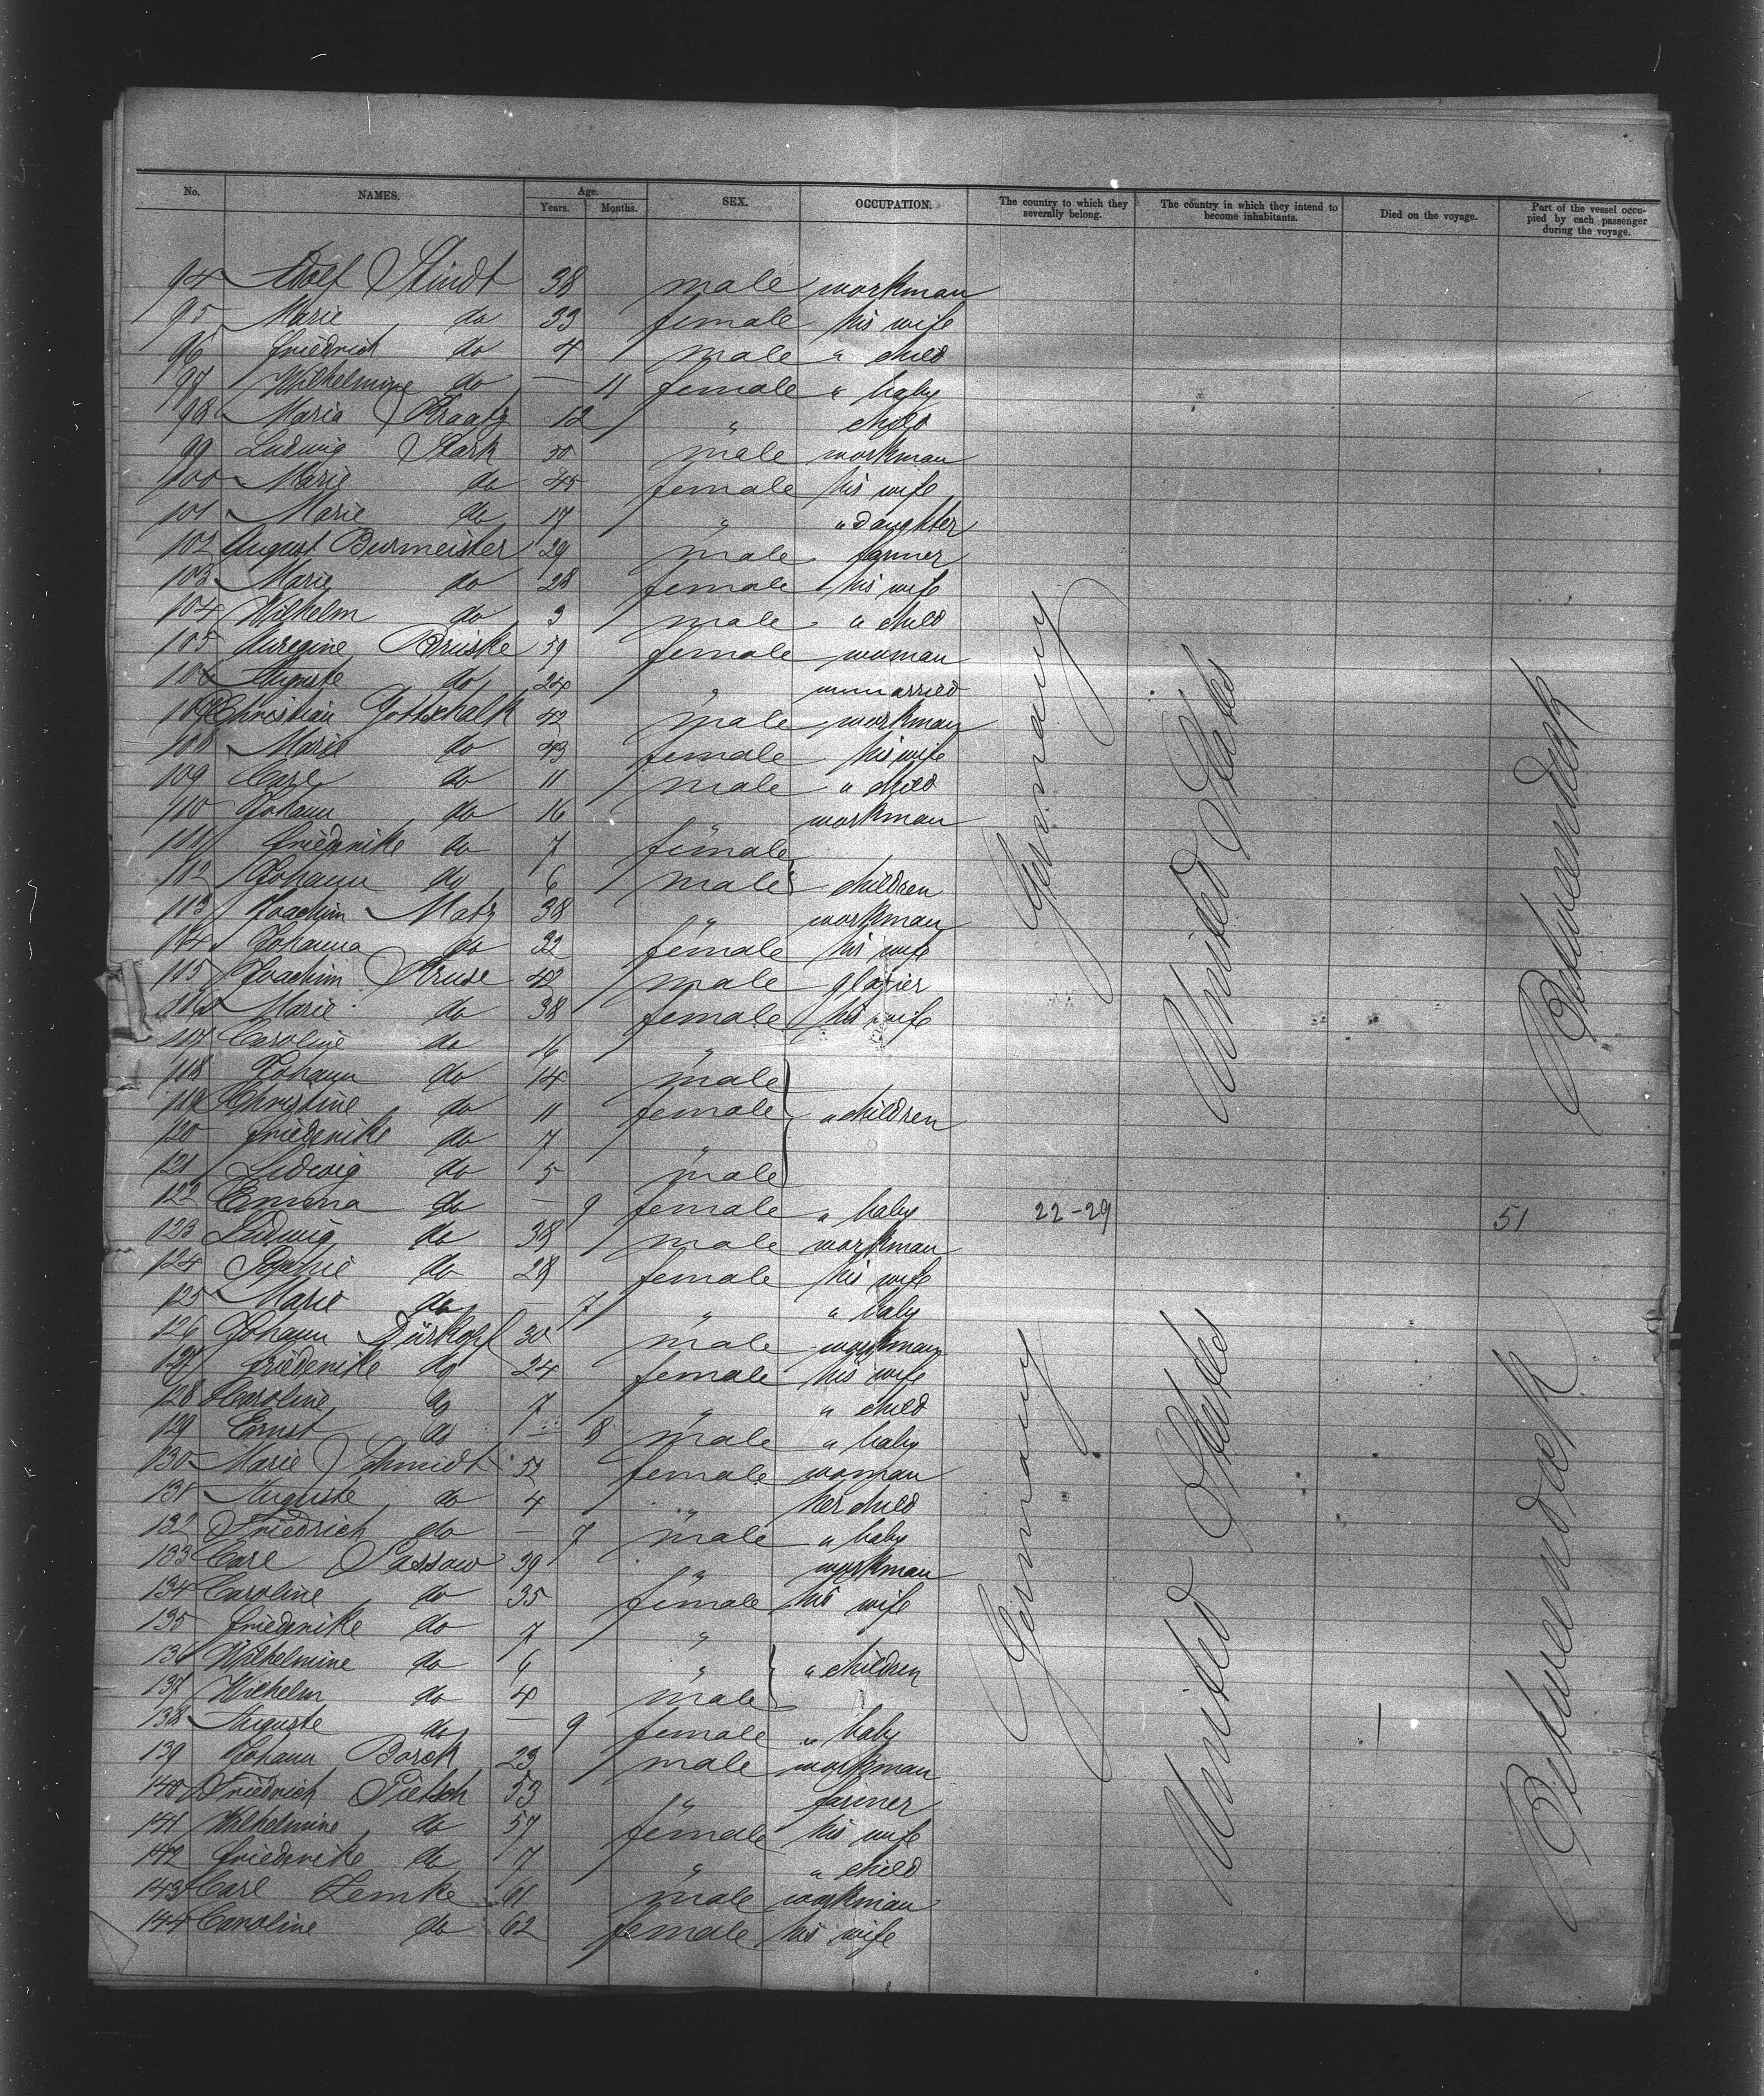 No. NAMES. Age. Years. Months. SEX. OCCUPATION. The country to which they severally belong. The country in which they intend to become inhabitants. Died on the voyage. Part of the vessel occupied by each passenger during the voyage.
94 Adolf Stindt 38 male workman
95 Marie do 33 female his wife
96 Friedrich do 4 male " child
97 Wilhelmine do — 11 female " baby
98 Maria Braatz 12 " child
99 Ludwig Stark 50 male workman
100 Marie do 45 female his wife
101 Marie do 17 " " daughter
102 August Burmeister 29 male farmer
103 Marie do 28 female his wife
104 Wilhelm do 3 male " child
105 Brüske 59 female woman
106 Auguste do 24 " unmarried
107 Christian Gottschalk 42 male workman
108 Marie do 43 female his wife
109 Carl do 11 male " child
110 Johann do 16 " workman
111 Friederike do 7 female
112 Johann do 6 male children
113 Joachim Matz 38 " workman
114 Johanna do 32 female his wife
115 Joachim Kruse 42 male glazier
116 Marie do 38 female his wife
117 Caroline do 16 "
118 Johann do 14 male
119 Christine do 11 female " children
120 Friederike do 7 "
121 Ludwig do 5 male
122 Emma do — 9 female " baby 22-29 51
123 Ludwig do 38 male workman
124 Sophie do 28 female his wife
125 Marie do — 7 " " baby
126 Johann Dürkopf 30 male workman
127 Friederike do 24 female his wife
128 Caroline do 7 " " child
129 Ernst do — 8 male " baby
130 Marie Schmidt 52 female woman
131 Auguste do 4 " her child
132 Friedrich do — 7 male " baby
133 Carl Sassow 39 " workman
134 Caroline do 35 female his wife
135 Friederike do 7 "
136 Wilhelmine do 6 " " children
137 Wilhelm do 4 male
138 Auguste do — 9 female " baby
139 Johann Borck 23 male workman
140 Friedrich Pietsch 53 " farmer
141 Wilhelmine do 57 female his wife
142 Friederike do 7 " " child
143 Carl Lemke 61 male workman
144 Caroline do 62 female his wife
Germany
United States
Betweendeck
Germany
United States
Betweendeck